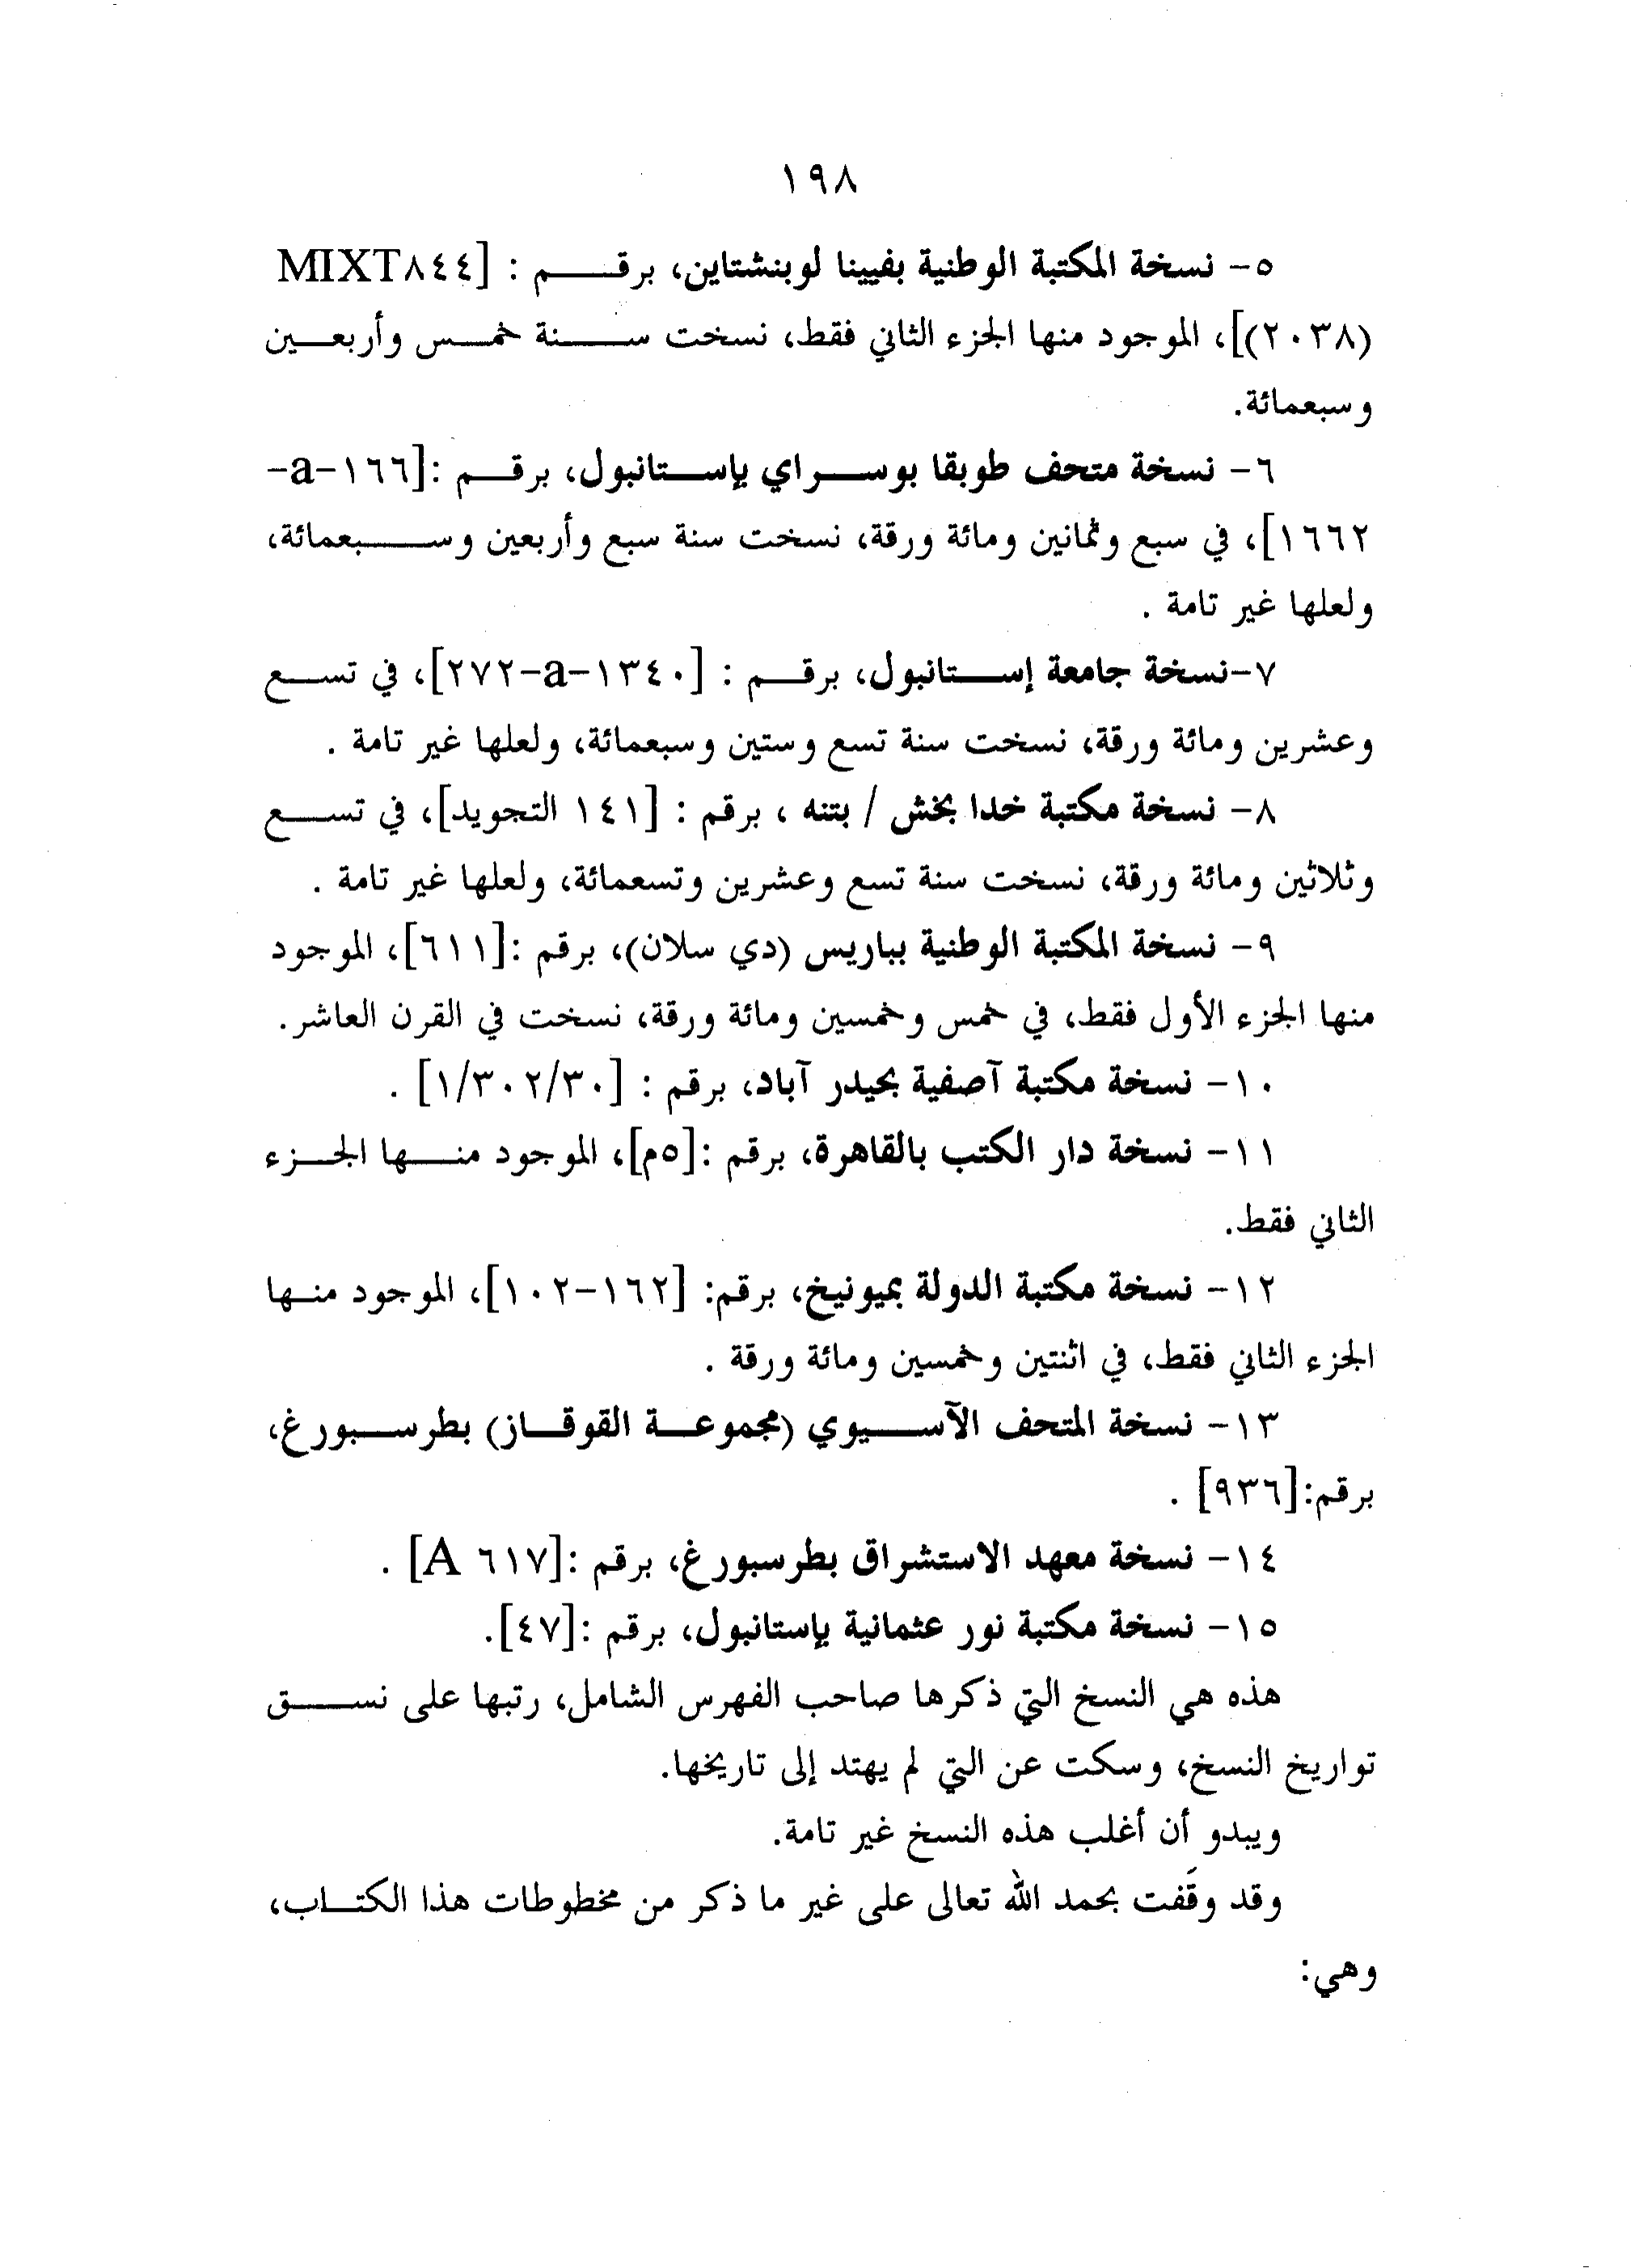 ١٩٨
٥- نسخة المكتبة الوطنية بفيينا لوبنشتاين، برقم : [MIXT٨٤٤
(٢٠٣٨)]، الموجود منها الجزء الثاني فقط، نسخت سنة خمس وأربعين
وسبعمائة.
٦- نسخة متحف طوبقا بوسراي بإستانبول، برقم :[١٦٦-a-
١٦٦٢]، في سبع وثمانين ومائة ورقة، نسخت سنة سبع وأربعين وسبعمائة،
ولعلها غير تامة .
٧-نسخة جامعة إستانبول، برقم : [١٣٤٠-a-٢٧٢]، في تسع
وعشرين ومائة ورقة، نسخت سنة تسع وستين وسبعمائة، ولعلها غير تامة .
٨- نسخة مكتبة خدا بخش / بتنه ، برقم : [١٤١ التجويد]، في تسع
وثلاثين ومائة ورقة، نسخت سنة تسع وعشرين وتسعمائة، ولعلها غير تامة .
٩- نسخة المكتبة الوطنية بباريس (دي سلان)، برقم :[٦١١]، الموجود
منها الجزء الأول فقط، في خمس وخمسين ومائة ورقة، نسخت في القرن العاشر.
١٠- نسخة مكتبة آصفية بحيدر آباد، برقم : [١/٣٠٢/٣٠] .
١١- نسخة دار الكتب بالقاهرة، برقم :[٥م]، الموجود منها الجزء
الثاني فقط.
١٢- نسخة مكتبة الدولة بميونيخ، برقم: [١٦٢-١٠٢]، الموجود منها
الجزء الثاني فقط، في اثنتين وخمسين ومائة ورقة .
١٣- نسخة المتحف الآسيوي (مجموعة القوقاز) بطرسبورغ،
برقم:[٩٣٦] .
١٤- نسخة معهد الاستشراق بطرسبورغ، برقم :[٦١٧ A] .
١٥- نسخة مكتبة نور عثمانية بإستانبول، برقم :[٤٧].
هذه هي النسخ التي ذكرها صاحب الفهرس الشامل، رتبها على نسق
تواريخ النسخ، وسكت عن التي لم يهتد إلى تاريخها.
ويبدو أن أغلب هذه النسخ غير تامة.
وقد وقَفت بحمد الله تعالى على غير ما ذكر من مخطوطات هذا الكتاب،
وهي: